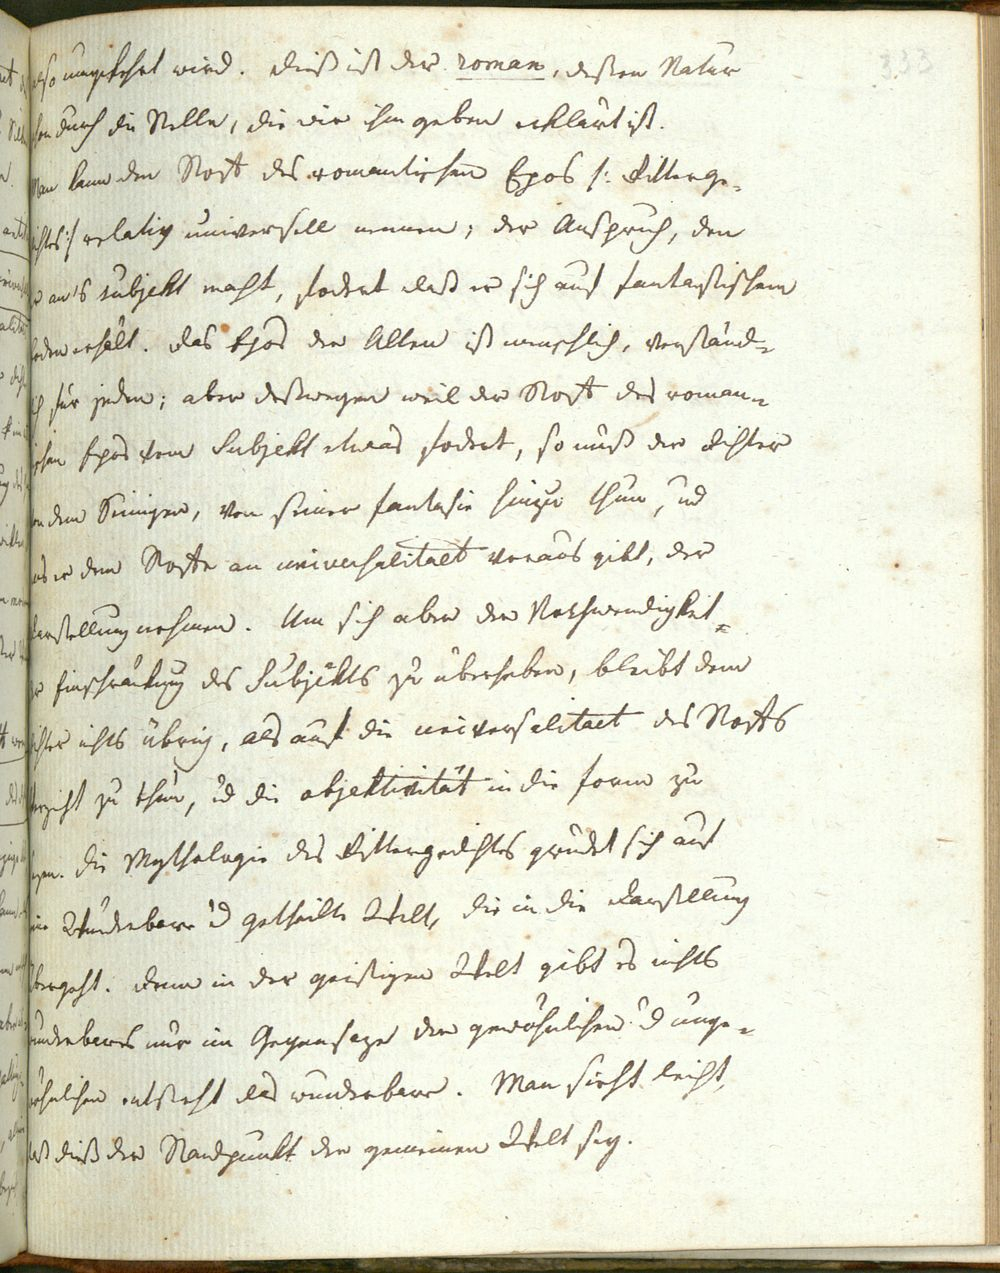 also umgekehrt wird. Dieß ist der roman, dessen Natur
schon durch die Stelle, die wir ihm geben erklärt ist.
Man kann den Stoff des romantischen Epos /: Ritterge-
dichtes :/ relativ universell nennen; der Anspruch, den
er an's Subjekt macht, fodert daß er sich auf fantastischem
Boden erhält. Das Epos der Alten ist menschlich, verständ-
lich für jeden; aber deßwegen weil der Stoff des roman-
tischen Epos vom Subjekt etwas fodert, so muß der Dichter
von dem Seinigen, von seiner fantasie hinzu thun, und
was er dem Stoffe an universalitaet voraus gibt, der
Darstellung nehmen. Um sich aber der Nothwendigkeit
der Einschränkung des Subjekts zu überheben, bleibt dem
Dichter nichts übrig, als auf die universalitaet des Stoffs
Verzicht zu thun, ud die objektivität in die form zu
legen. Die Mythologie des Rittergedichtes gründet sich auf
eine Wunderbare ud getheilte Welt, die in die Darstellung
übergeht. Denn in der geistigen Welt gibt es nichts
wunderbares nur im Gegensaze des gewöhnlichen ud unge-
wöhnlichen entsteht das wunderbare. Man sieht leicht,
daß dieß der Standpunkt der gemeinen Welt sey.